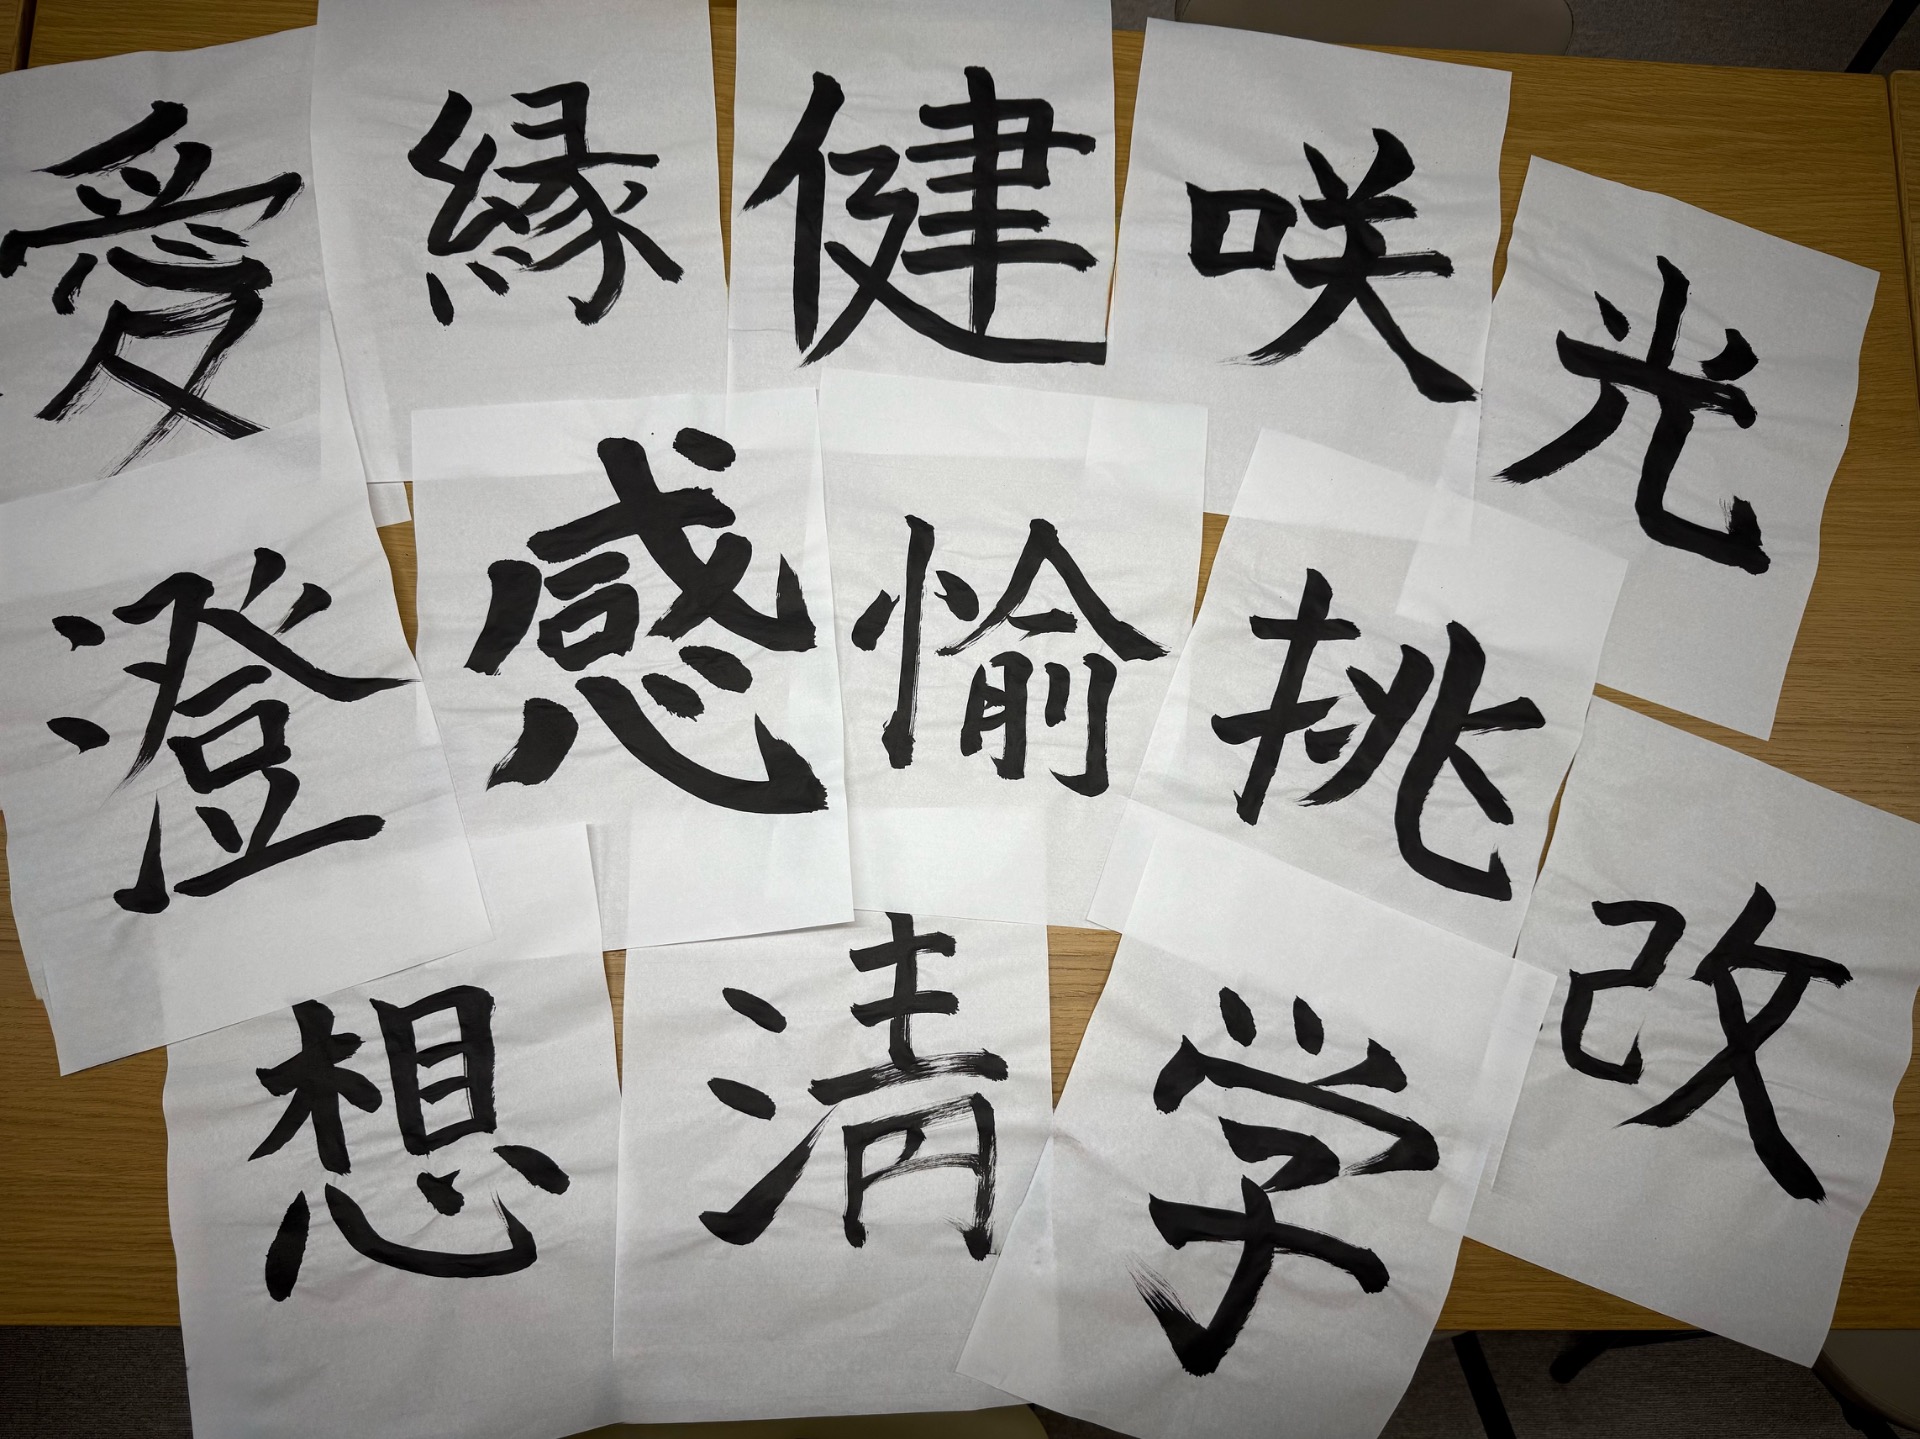 愛
縁
健
咲
光
澄
感
愉
挑
改
想
清
学